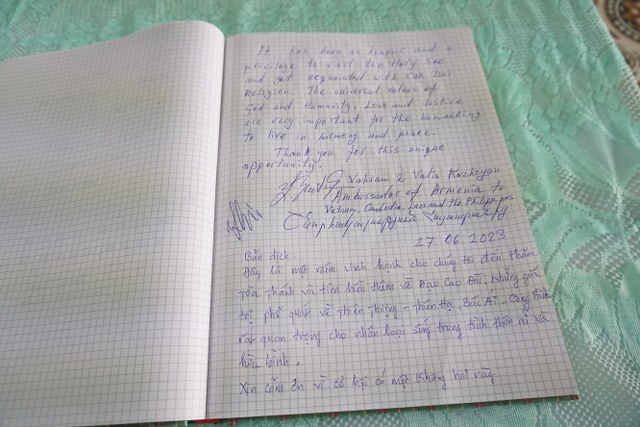 It has been an honour and a
privilege to visit the Holy See
and get acquainted with Cao Dai
Religion. The universal values of
God and Humanity, Love and Justice
are very important for the humankind
to live in harmony and peace.
Thank you for this unique
opportunity.
Vahram & Kazhoyan
Ambassador of Armenia to
Vietnam, Cambodia, Laos and the Philippines
27 06. 2023
Bản dịch
Đây là một niềm vinh hạnh cho chúng tôi đến thăm
Tòa Thánh và tìm hiểu thêm về Đạo Cao Đài, những giá
trị phổ quát về Thiên Thượng - Thiên Hạ, Bác Ái - Công bình
rất quan trọng cho nhân loại sống trong tình thân ái và
hòa bình.
Xin cảm ơn vì cơ hội có một không hai này